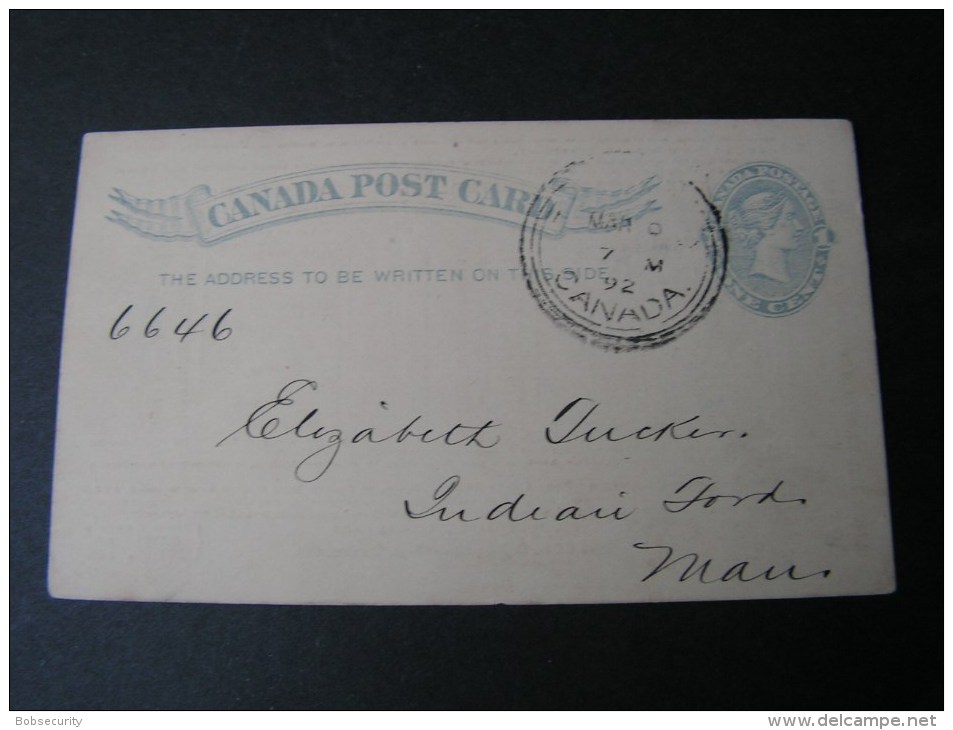 CANADA POST CARD
CANADA POSTAGE
ONE CENT
THE ADDRESS TO BE WRITTEN ON THIS SIDE
7 M
92
CANADA.
6646
Elizabeth Tucker.
Indian Ford.
Man.
Bobsecurity
www.delcampe.net